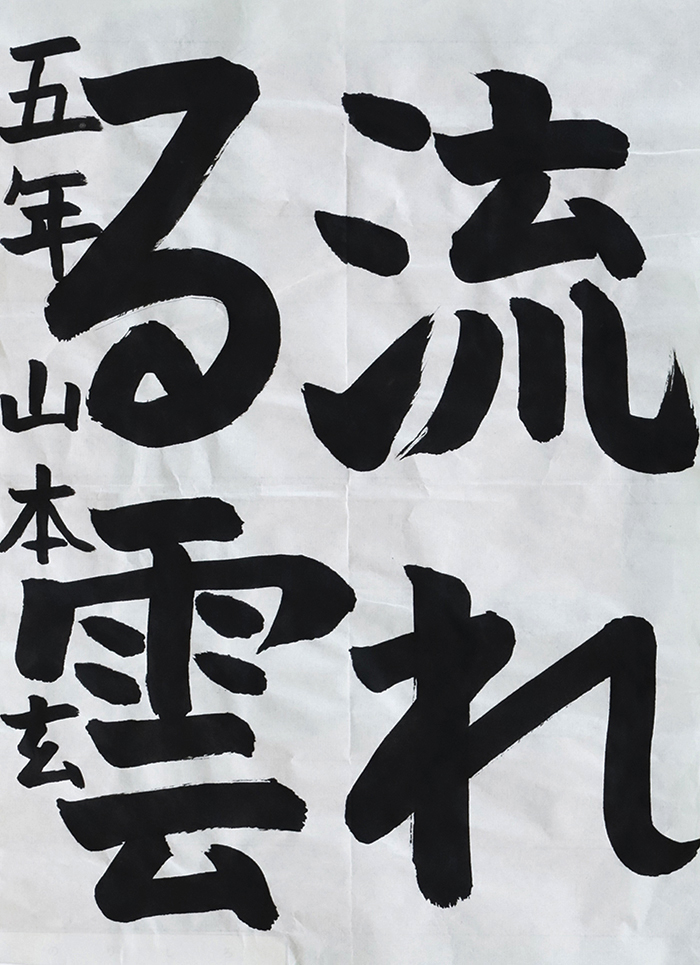 流れ
る雲
五年山本玄